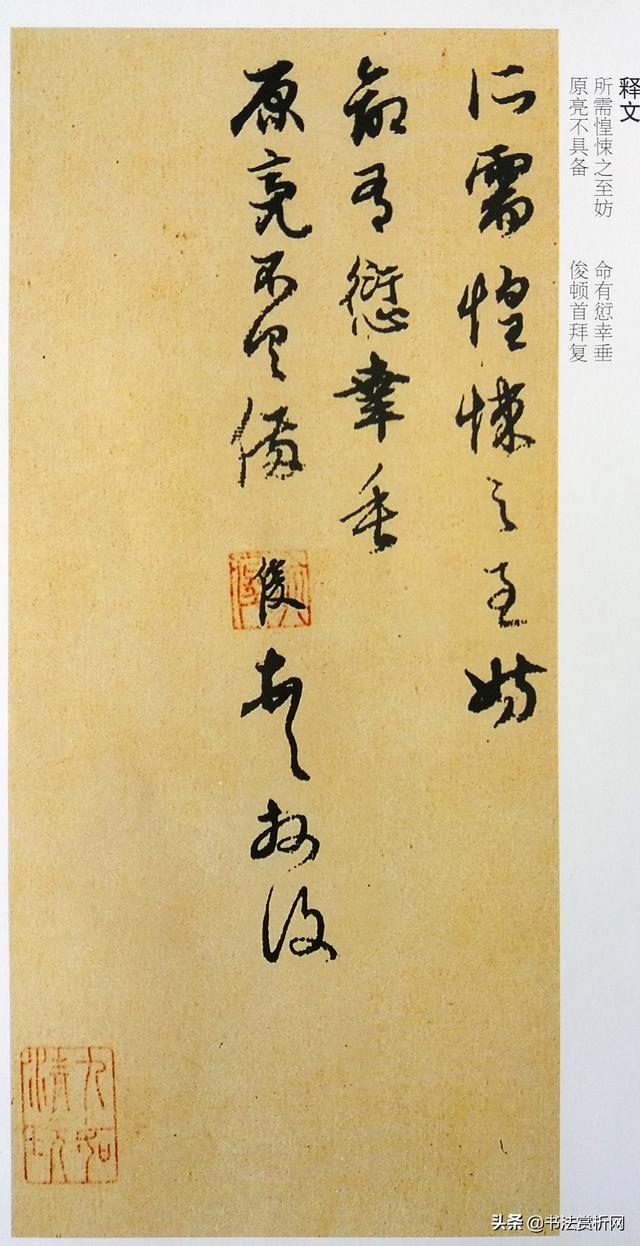 释文
所需惶悚之至妨　命有愆幸垂
原亮不具备　俊顿首拜复
所需惶悚之至妨
命有愆幸垂
原亮不具備　俊頓首拜復
九如清玩
头条 @书法赏析网